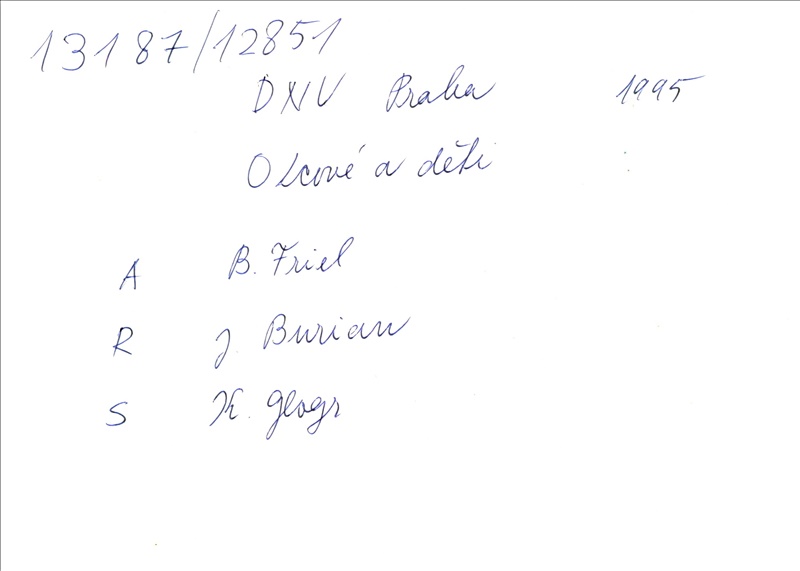 13187/12851
DNV Praha 1995
Otcové a děti
A B. Friel
R J Burian
S K. Glogr